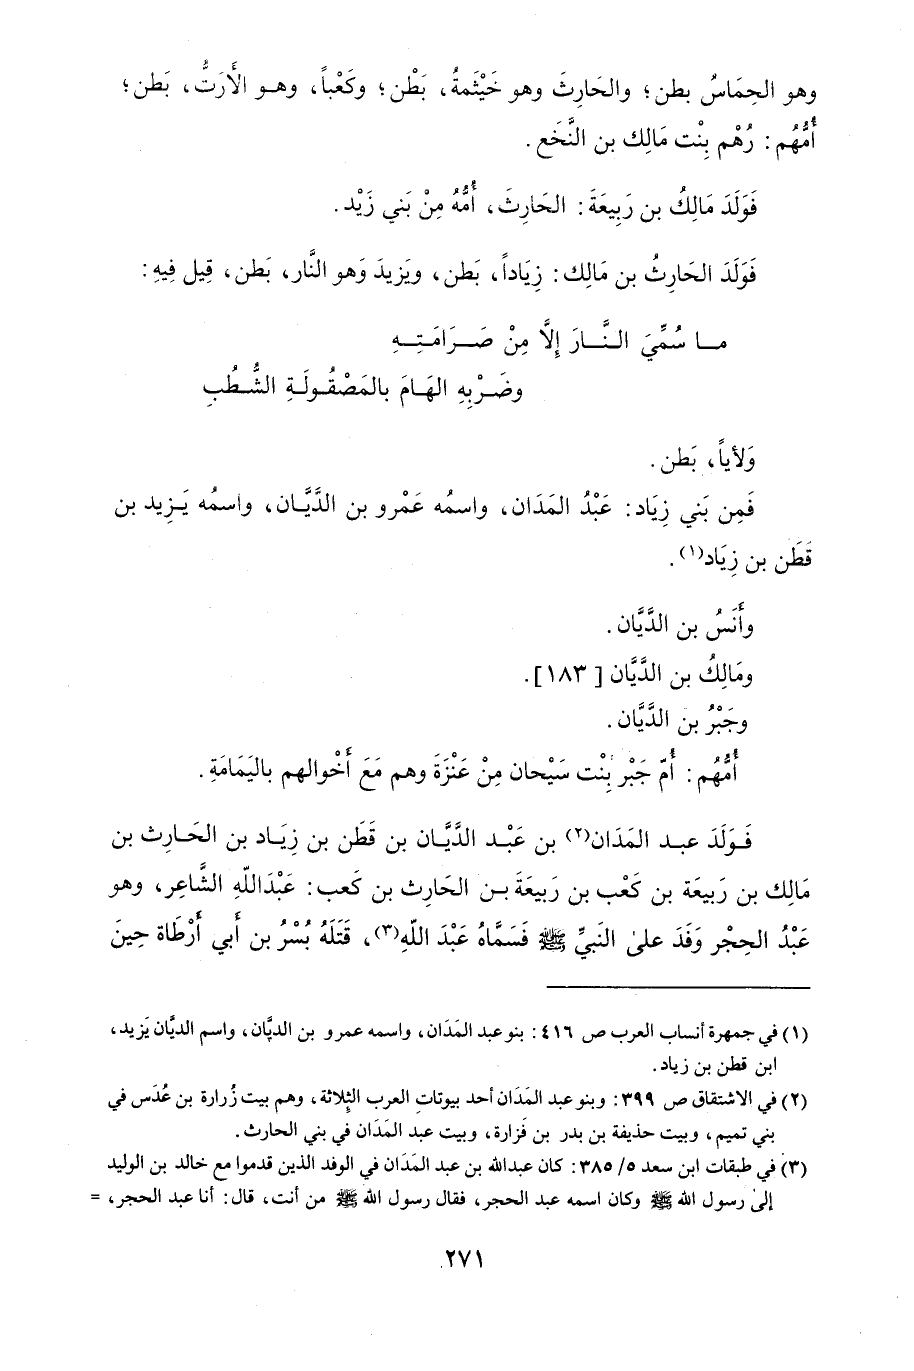 وهو الحِمَاسُ بطن؛ والحَارِثَ وهو خَيْثمةُ، بَطْن؛ وكَعْباً، وهـو الأَرَتُّ، بَطن؛
أُمُّهُم: رُهْم بِنْت مَالِك بن النَّخَع.
فَوَلَدَ مَالِكُ بن رَبِيعَةَ: الحَارِثَ، أُمُّهُ مِنْ بَني زَيْد.
فَوَلَدَ الحَارِثُ بن مَالِك: زِيَاداً، بَطن، ويَزِيدَ وَهو النَّار، بَطن، قِيل فِيهِ:
مـا سُمِّيَ النَّـارَ إِلَّا مِنْ صَـرَامَتِـهِ
وضَـرْبِهِ الهَـامَ بالمَصْقُـولَـةِ الشُّطُبِ
وَلأياً، بَطن.
فَمِن بَني زِيَاد: عَبْدُ المَدَان، واسمُه عَمْرو بن الدَّيَّـان، واسمُه يَـزِيد بن
قَطَن بن زِيَاد(١).
وأَنَسُ بن الدَّيَّان.
ومَالِكُ بن الدَّيَّان [١٨٣].
وجَبْرُ بن الدَّيَّان.
أُمُّهُم: أُمّ جَبْر بِنْت سَيْحان مِنْ عَنْزَةَ وهم مَعَ أَخْوالهم باليَمَامَةِ.
فَـوَلَدَ عبـد المَدَان(٢) بن عَبْـد الدَّيَّـان بن قَطَن بن زِيَـاد بن الحَـارِث بن
مَالِك بن رَبيعَة بن كَعْب بن رَبيعَةَ بـن الحَارِث بن كَعب: عَبْدَاللّهِ الشَّاعِر، وهو
عَبْدُ الحِجْر وَفَدَ علىٰ النَبيِّ ﷺ فَسَمَّاهُ عَبْدَ اللّهِ(٣)، قَتَلَهُ بُسْرُ بن أَبي أَرْطَاة حِينَ
(١) في جمهرة أنساب العرب ص ٤١٦: بنو عبد المَدَان، واسمه عمرو بن الديَّان، واسم الديَّان يَزيد،
ابن قطن بن زياد.
(٢) في الاشتقاق ص ٣٩٩: وبنو عبد المَدَان أحد بيوتات العرب الثِلاثة، وهم بيت زُرارة بن عُدَس في
بني تميم، وبيت حذيفة بن بدر بن فَزارة، وبيت عبد المَدَان في بني الحارث.
(٣) في طبقات ابن سعد ٥/ ٣٨٥: كان عبدالله بن عبد المَدَان في الوفد الذين قدموا مع خالد بن الوليد
إلىٰ رسول الله ﷺ وكان اسمه عبد الحجر، فقال رسول الله ﷺ من أنت، قال: أنا عبد الحجر، =
٢٧١